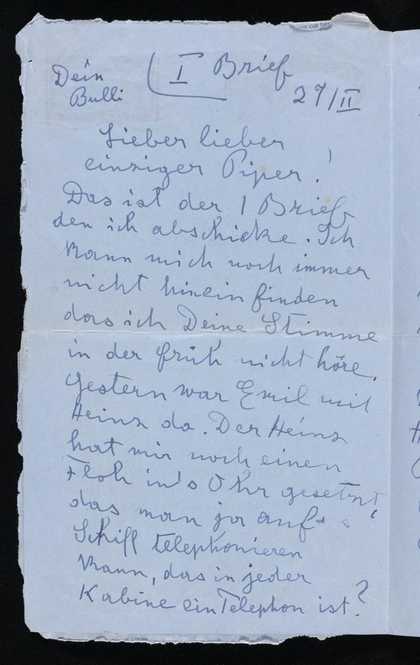 Dein
Bulli
I Brief
27/II
Lieber lieber
einziger Piper!
Das ist der 1 Brief
den ich abschicke. Ich
kann mich noch immer
nicht hinein finden
das ich Deine Stimme
in der früh nicht höre.
Gestern war Emil mit
Heinz da. Der Heinz
hat mir noch einen
Floh in's Ohr gesetzt,
das man ja auf
Schiff telephonieren
kann, das in jeder
Kabine ein Telephon ist?